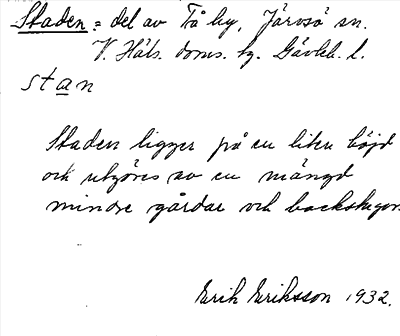 Staden = del av Få by, Järvsö sn.
V. Häls. doms. hg. Gävleb. l.
stan
Staden ligger på en liten höjd
och utgöres av en mängd
mindre gårdar och backstugor.
Erik Eriksson 1932.